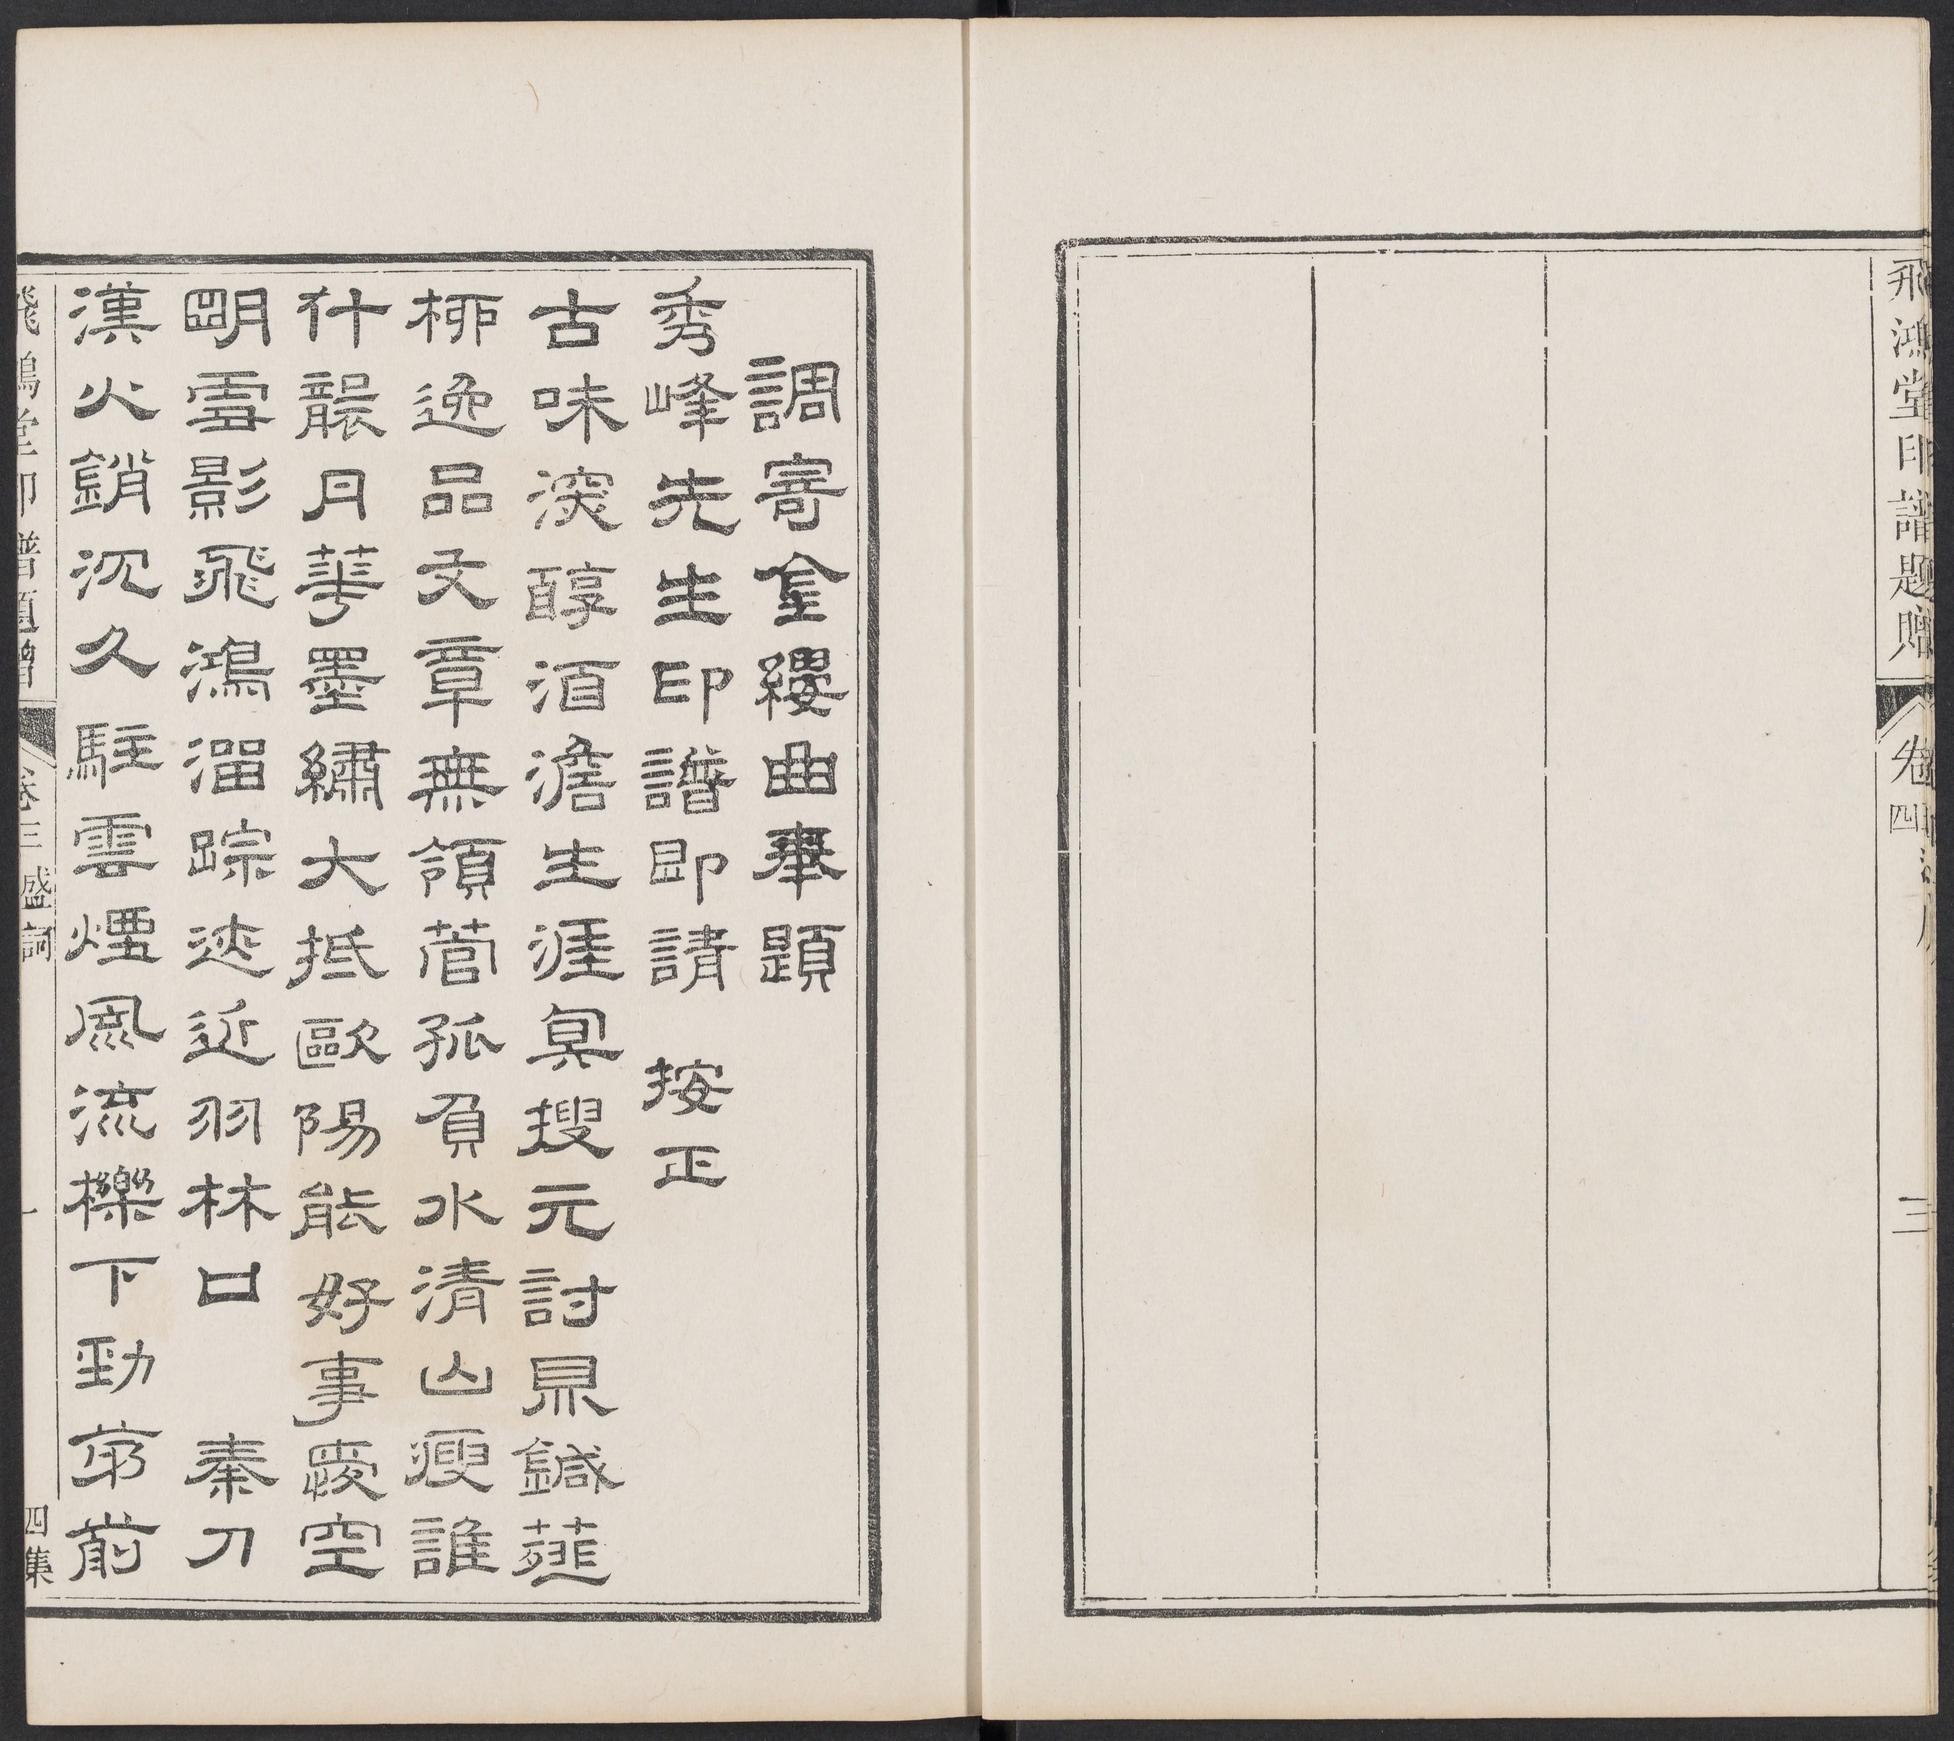 飛鴻堂印譜題贈 卷四 三
調寄金縷曲奉題
秀峰先生印譜即請 按正
古味深醇酒澹生涯冥搜元討県鍼薤
柳逸品文章無領菅孤負水清山瘦誰
什襲月華墨繡大抵歐陽能好事愛空
明雪影飛鴻溜踪迹近羽林口 秦刀
漢火銷沉久駐雲煙風流櫟下勁前
飛鴻堂印譜題贈 卷三 盛詞 一 四集